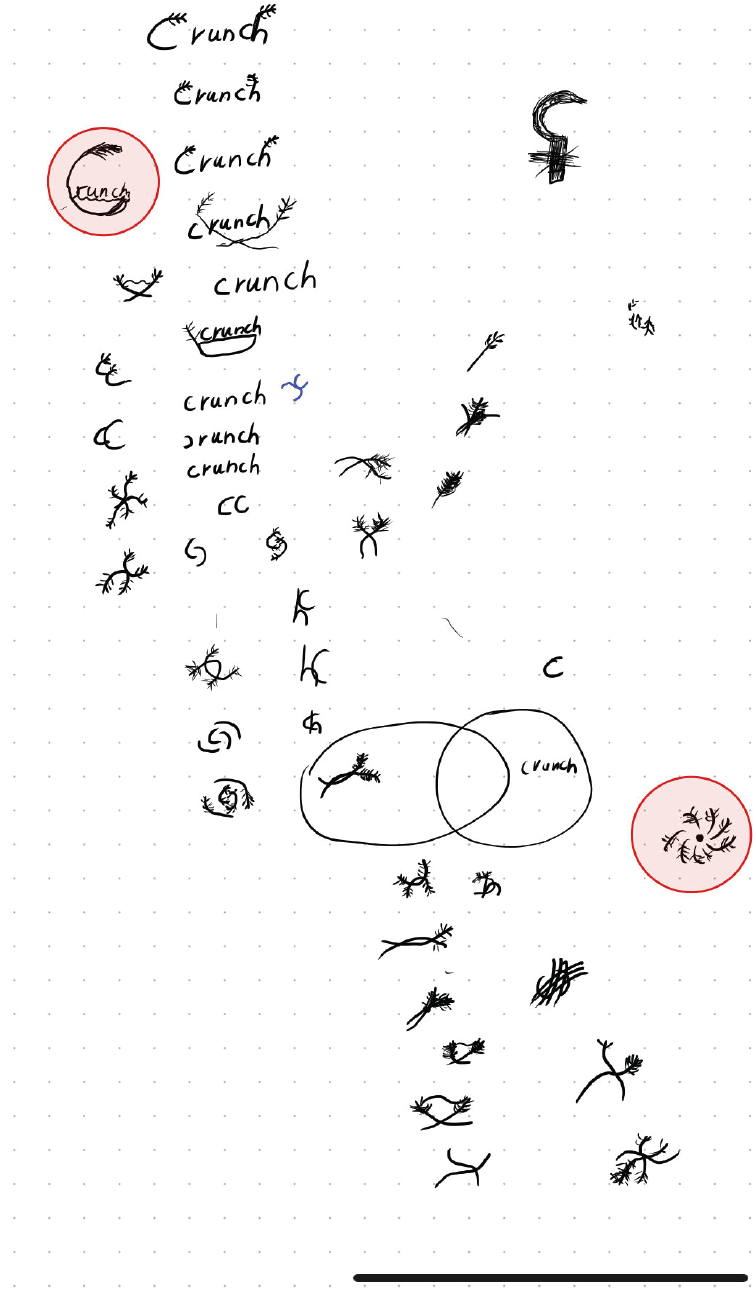 Crunch
Crunch
Crunch
Crunch
crunch
crunch
crunch
crunch
crunch
crunch
cc
h
c
crunch